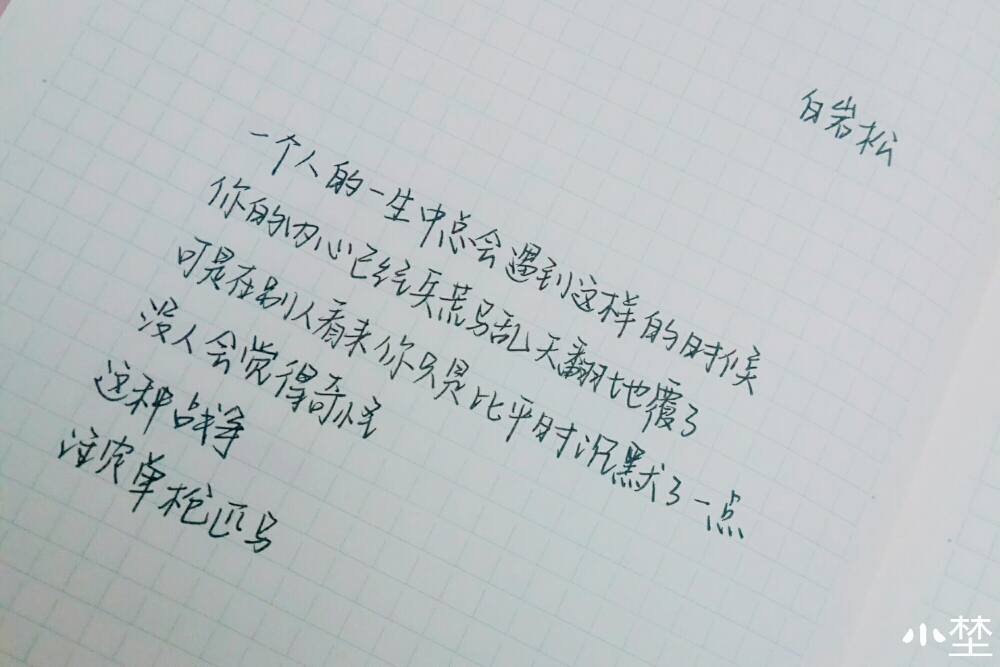 白岩松
一个人的一生中总会遇到这样的时候
你的内心已经兵荒马乱天翻地覆了
可是在别人看来你只是比平时沉默了一点
没人会觉得奇怪
这种战争
注定单枪匹马
小埜